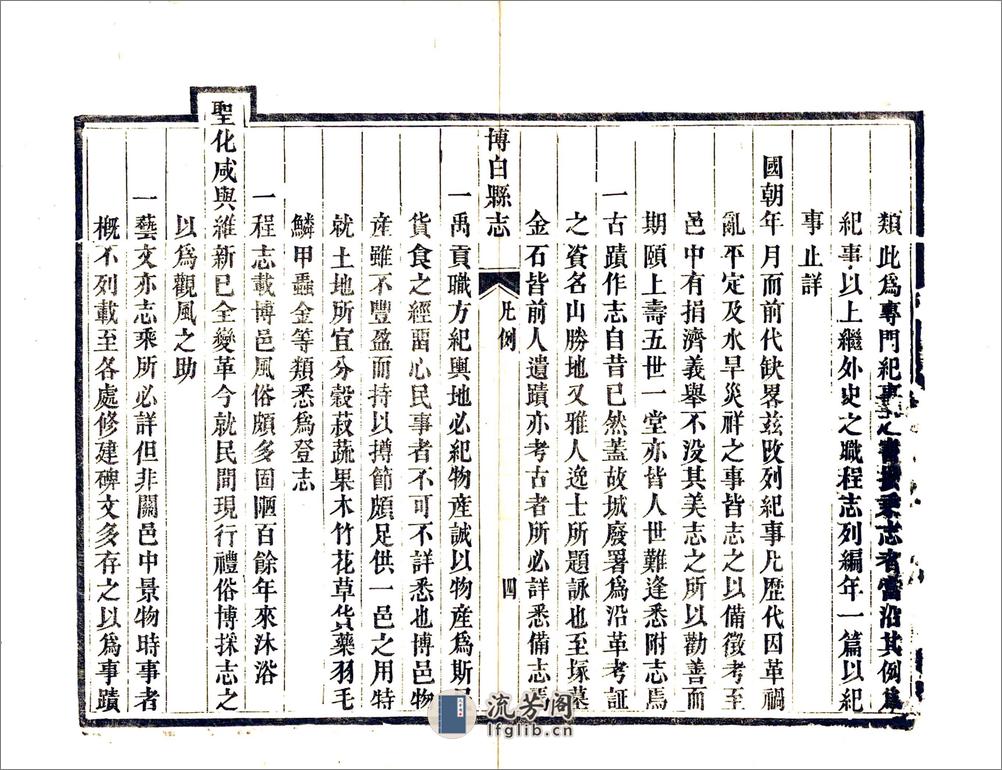 類此爲專門紀事之書秉志者當沿其例爲
紀事以上繼外史之職程志列編年一篇以紀
事止詳
國朝年月而前代缺畧茲改列紀事凡歷代因革禍
亂平定及水旱災祥之事皆志之以備徵考至
邑中有捐濟義舉不没其美志之所以勸善而
期頤上壽五世一堂亦皆人世難逢悉附志焉
一古蹟作志自昔已然蓋故城廢署爲沿革考証
之資名山勝地又雅人逸士所題詠也至塚墓
金石皆前人遺蹟亦考古者所必詳悉備志焉
博白縣志
凡例
四
一禹貢職方紀輿地必紀物産誠以物産爲斯民
貨食之經畱心民事者不可不詳悉也博邑物
産雖不豐盈而持以撙節頗足供一邑之用特
就土地所宜分穀菽蔬果木竹花草貨藥羽毛
鱗甲蟲金等類悉爲登志
一程志載博邑風俗頗多固陋百餘年來沐浴
聖化咸與維新已全變革今就民間現行禮俗博採志之
以爲觀風之助
一藝文亦志乘所必詳但非關邑中景物時事者
槪不列載至各處修建碑文多存之以爲事蹟
流芳阁
lfglib.cn